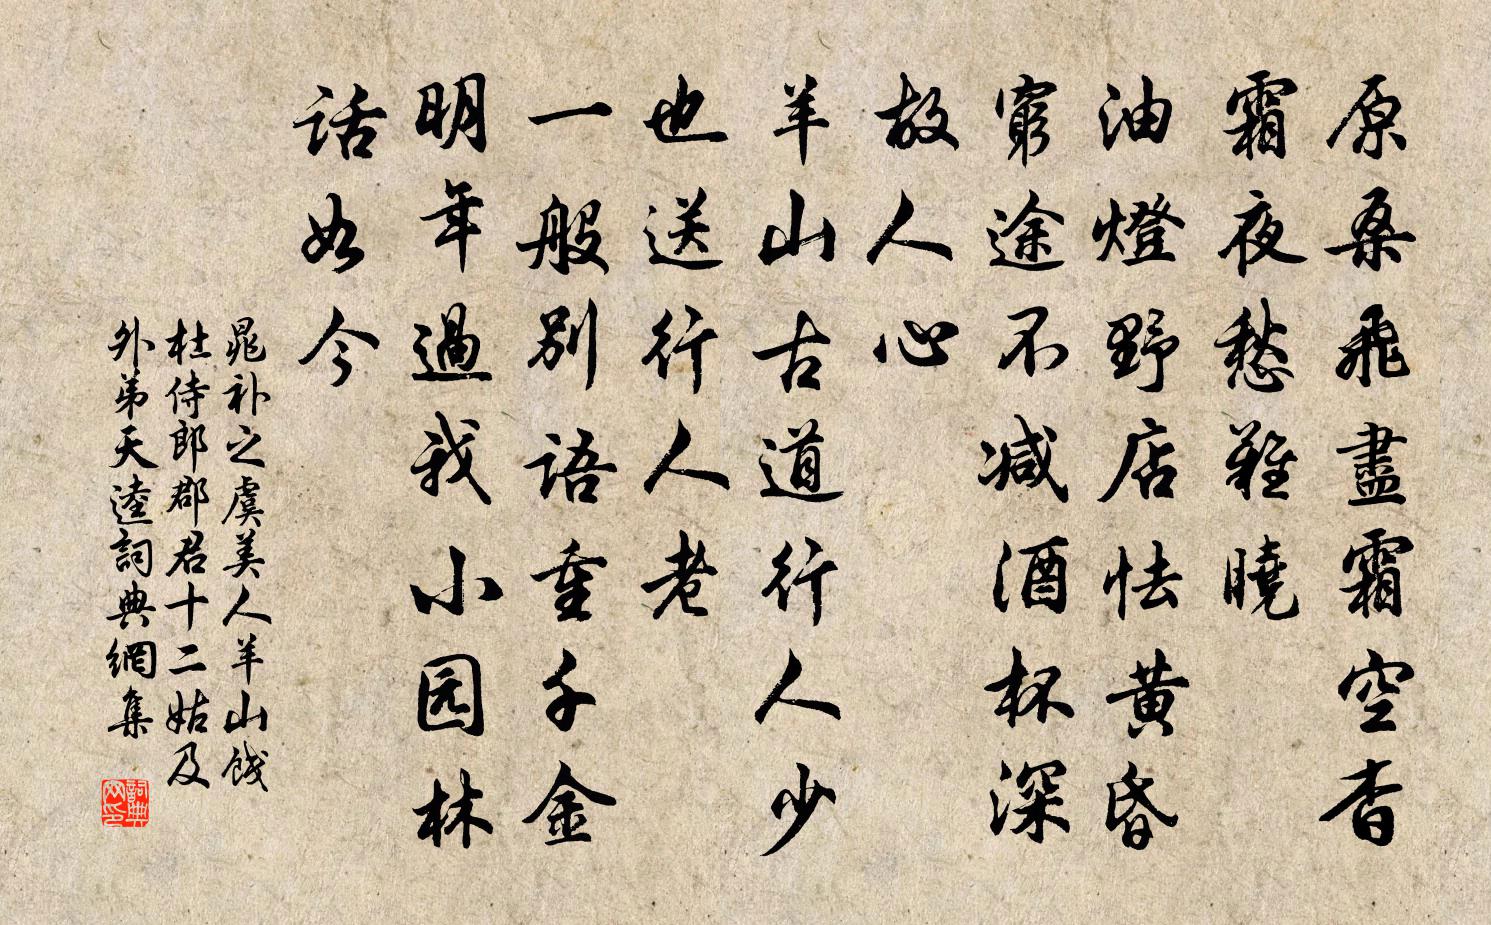 原桑飛盡霜空杳
霜夜愁難曉
油燈野店怯黄昏
窮途不減酒杯深
故人心
羊山古道行人少
也送行人老
一般別語重千金
明年過我小园林
話如今
晁补之虞美人羊山餞
杜侍郎郡君十二姑及
外弟天逵詞典網集
詞典
网印